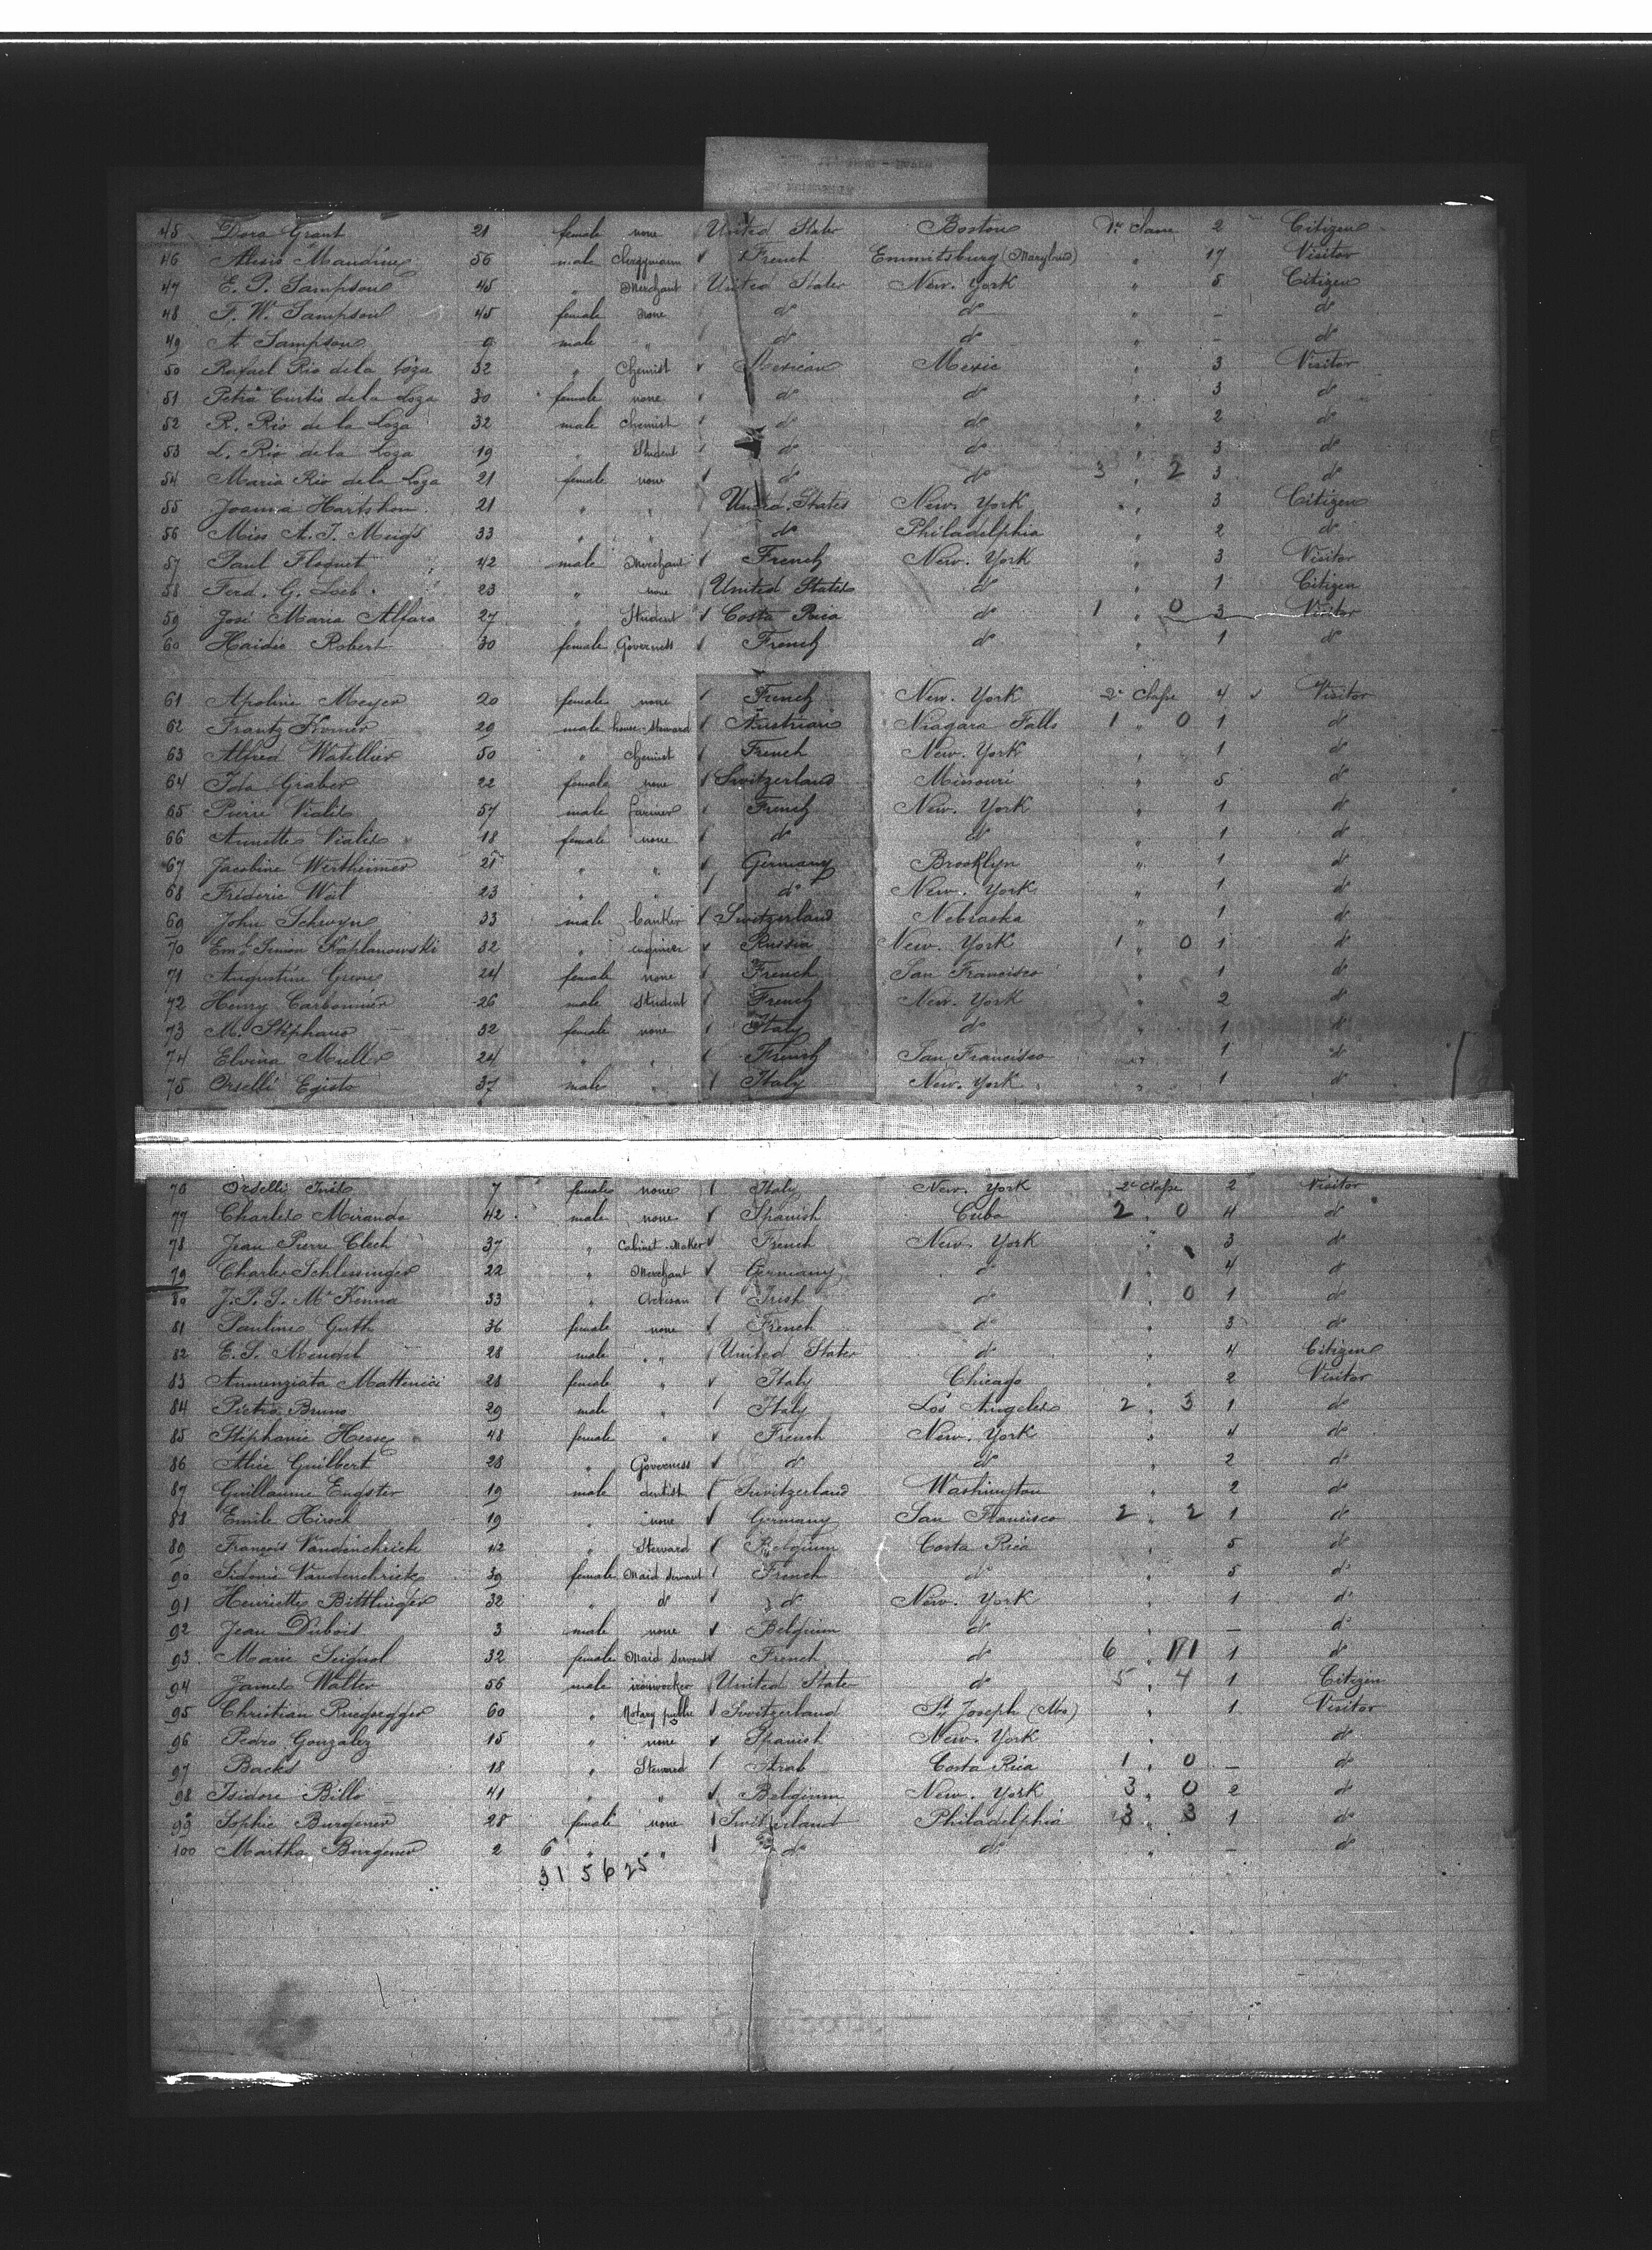 45 Dora Grant 21 female none United States Boston 1re Classe 2 Citizen
46 Alexis Mandine 56 male Clergymann French Emmitsburg (Maryland) " 17 Visitor
47 E. P. Sampson 45 " Merchant United States New. York " 5 Citizen
48 F. W. Sampson 45 female none do do " - do
49 A Sampson 9 male " do do " - do
50 Rafael Rio de la Loza 32 " Chemist Mexican Mexic " 3 Visitor
51 Petra Curtis de la Loza 30 female none do do " 3 do
52 R. Rio de la Loza 32 male Chemist do do " 2 do
53 L. Rio de la Loza 19 " Student do do " 3 do
54 Maria Rio de la Loza 21 female none do do 3 " 2 3 do
55 Joanna Hartshorn 21 " " United States New. York " 3 Citizen
56 Miss A. J. Meigs 33 " " do Philadelphia " 2 do
57 Paul Floquet 42 male Merchant French New. York " 3 Visitor
58 Ferd. G. Loeb. 23 " none United States do " 1 Citizen
59 José Maria Alfaro 27 " Student Costa Rica do 1 " 0 3 Visitor
60 Haidie Robert 30 female Governess French do " 1 do
61 Apoline Meyer 20 female none French New. York 2e Classe 4 Visitor
62 Frantz Korner 29 male house-steward Austrian Niagara Falls 1 " 0 1 do
63 Alfred Watellier 50 " Chemist French New. York " 1 do
64 Ida Graber 22 female none Switzerland Missouri " 5 do
65 Pierre Vialis 57 male farmer French New. York " 1 do
66 Annette Vialis 18 female none do do " 1 do
67 Jacobine Wertheimer 21 " " Germany Brooklyn " 1 do
68 Fréderic Weil 23 " " do New. York " 1 do
69 John Schwyn 33 male banker Switzerland Nebraska " 1 do
70 Simon Kaplanowski 32 " engineer Russia New. York 1 " 0 1 do
71 Augustine 24 female none French San Francisco " 1 do
72 Henry Carbonnier 26 male Student French New. York " 2 do
73 M. Stéphano 32 female none Italy do " 1 do
74 Elvina Muller 24 " " French San Francisco " 1 do
75 Orselli Egisto 37 male " Italy New. York " 1 do
76 Orselli 7 female none Italy New. York 2e Classe 2 Visitor
77 Charles Miranda 42 male none Spanish Cuba 2 " 0 4 do
78 Jean Pierre Clech 37 " Cabinet-Maker French New. York " 3 do
79 Charles Schlessinger 22 " Merchant Germany do 4 do
80 J. P. S. Mc Kenna 33 " Artisan Irish do 1 " 0 1 do
81 Pauline Guth 36 female none French do " 3 do
82 E. S. Mendel 28 male " United States do " 4 Citizen
83 Annunziata Matteucci 28 female " Italy Chicago " 2 Visitor
84 Pietro Bruno 29 male " Italy Los Angeles 2 " 3 1 do
85 Stéphanie Hesse 48 female " French New. York " 4 do
86 Alice Guilbert 28 " Governess do do " 2 do
87 Guillaume Engster 19 male dentist Switzerland Washington " 2 do
88 Emile Hirsch 19 " none Germany San Francisco 2 " 2 1 do
89 François Vandenchrick 42 " Steward Belgium Costa Rica " 5 do
90 Sidonie Vandenchrick 39 female Maid servant French do " 5 do
91 Henriette Bittlinger 32 " do do New. York " 1 do
92 Jean Dubois 3 male none Belgium do " - do
93 Marie Seignol 32 female Maid servant French do 6 " 1 do
94 James Walter 56 male ironworker United State do 5 " 4 1 Citizen
95 Christian Ruegsegger 60 " Notary public Switzerland St. Joseph (Mo) " 1 Visitor
96 Pedro Gonzalez 15 " none Spanish New. York " do
97 Backs 18 " Steward Arab Costa Rica 1 " 0 - do
98 Isidore Billo 41 " " Belgium New. York 3 " 0 2 do
99 Sophie Burgener 28 female none Switzerland Philadelphia 3 " 3 1 do
100 Martha Burgener 2 6 " " do do " - do
315625